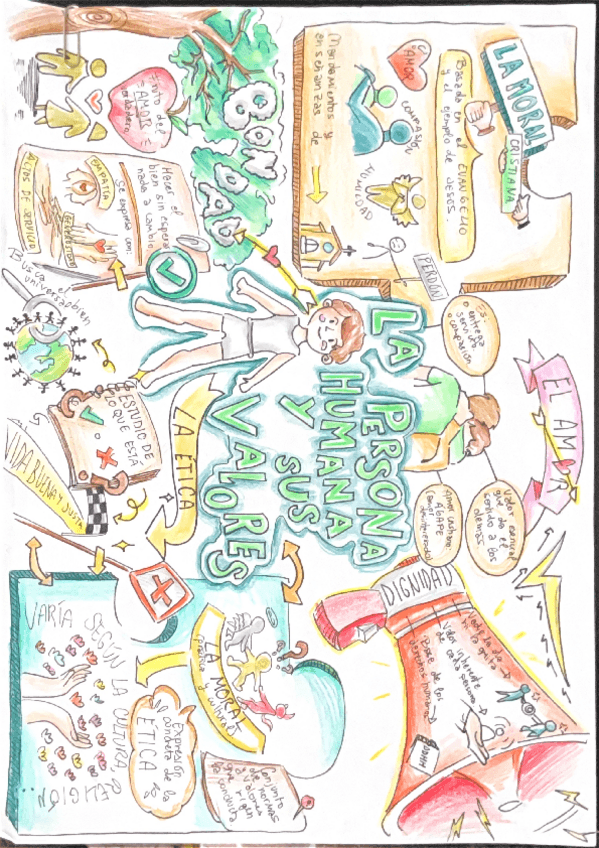 LA PERSONA
HUMANA
Y SUS
VALORES
BONDAD
Fruto del
AMOR
verdadero
Hacer el
bien sin esperar
nada a cambio
Se expresa con:
EMPATÍA
GENEROSIDAD
ACTOS DE SERVICIO
LA MORAL
CRISTIANA
Basada en el EVANGELIO
y el ejemplo de JESÚS.
Mandamientos y
enseñanzas de
AMOR
COMPASIÓN
HUMILDAD
PERDÓN
EL AMOR
Es:
entrega
servicio
o compasión
Valor esencial
que da el
sentido a los
demás.
Amor cristiano
ÁGAPE
LA ÉTICA
ESTUDIO DE
LO QUE ESTÁ
Busca el
bien
universal
VIDA BUENA Y JUSTA
DIGNIDAD
Nadie la da
ni la quita
Valor inherente
de cada persona
Base de los
derechos humanos
DDHH
LA MORAL
(práctica y cultural)
Conjunto
de normas
y valores
que rigen
la conducta
Expresión
concreta de la
ÉTICA
VARÍA SEGÚN LA CULTURA, RELIGIÓN...